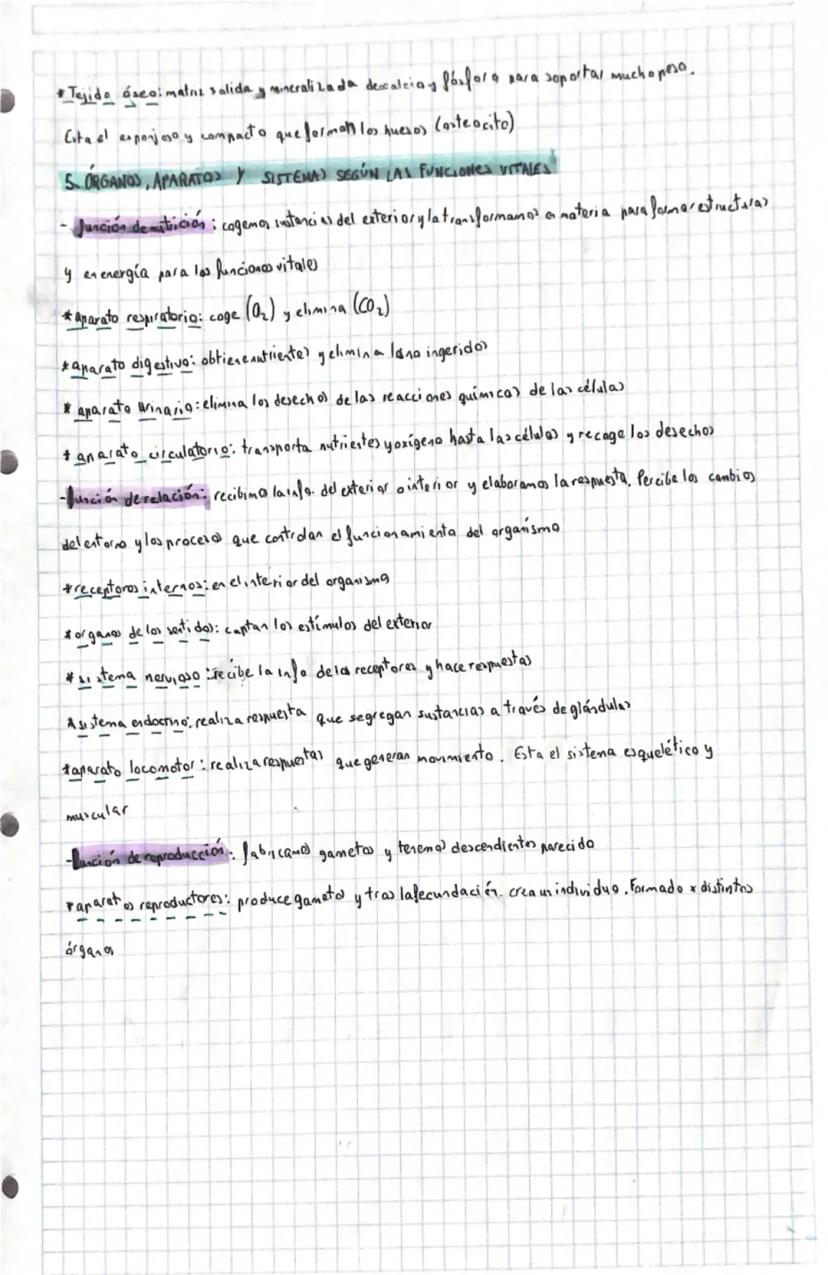 *Tejido óseo: matriz solida y mineralizada de calcio y fósforo para soportar mucho peso.
Esta el esponjoso y compacto que forman los huesos (osteocito)
5. ÓRGANOS, APARATOS Y SISTEMAS SEGÚN LAS FUNCIONES VITALES
- función de nutrición: cogemos sustancias del exterior y la transformamos en materia para formar estructuras
y en energía para las funciones vitales
*aparato respiratorio: coge (O₂) y elimina (CO₂)
*aparato digestivo: obtiene nutrientes y elimina lo no ingerido
* aparato urinario: elimina los desechos de las reacciones químicas de las células
* aparato circulatorio: transporta nutrientes y oxígeno hasta las células y recoge los desechos
-función de relación: recibimo la info. del exterior o interior y elaboramos la respuesta. Percibe los cambios
del entorno y los procesos que controlan el funcionamiento del organísmo
*receptores internos: en el interior del organismo
*organos de los sentidos: captan los estímulos del exterior
*sistema nervioso: recibe la info de los receptores y hace respuestas
*sistema endocrino: realiza respuesta que segregan sustancias a través de glándulas
*aparato locomotor: realiza respuestas que generan movimiento. Esta el sistema esquelético y
muscular
-función de reproducción: fabricamos gametos y tenemos descendientes parecido
*aparatos reproductores: produce gametos y tras la fecundación. crea un individuo. Formado x distintos
órganos